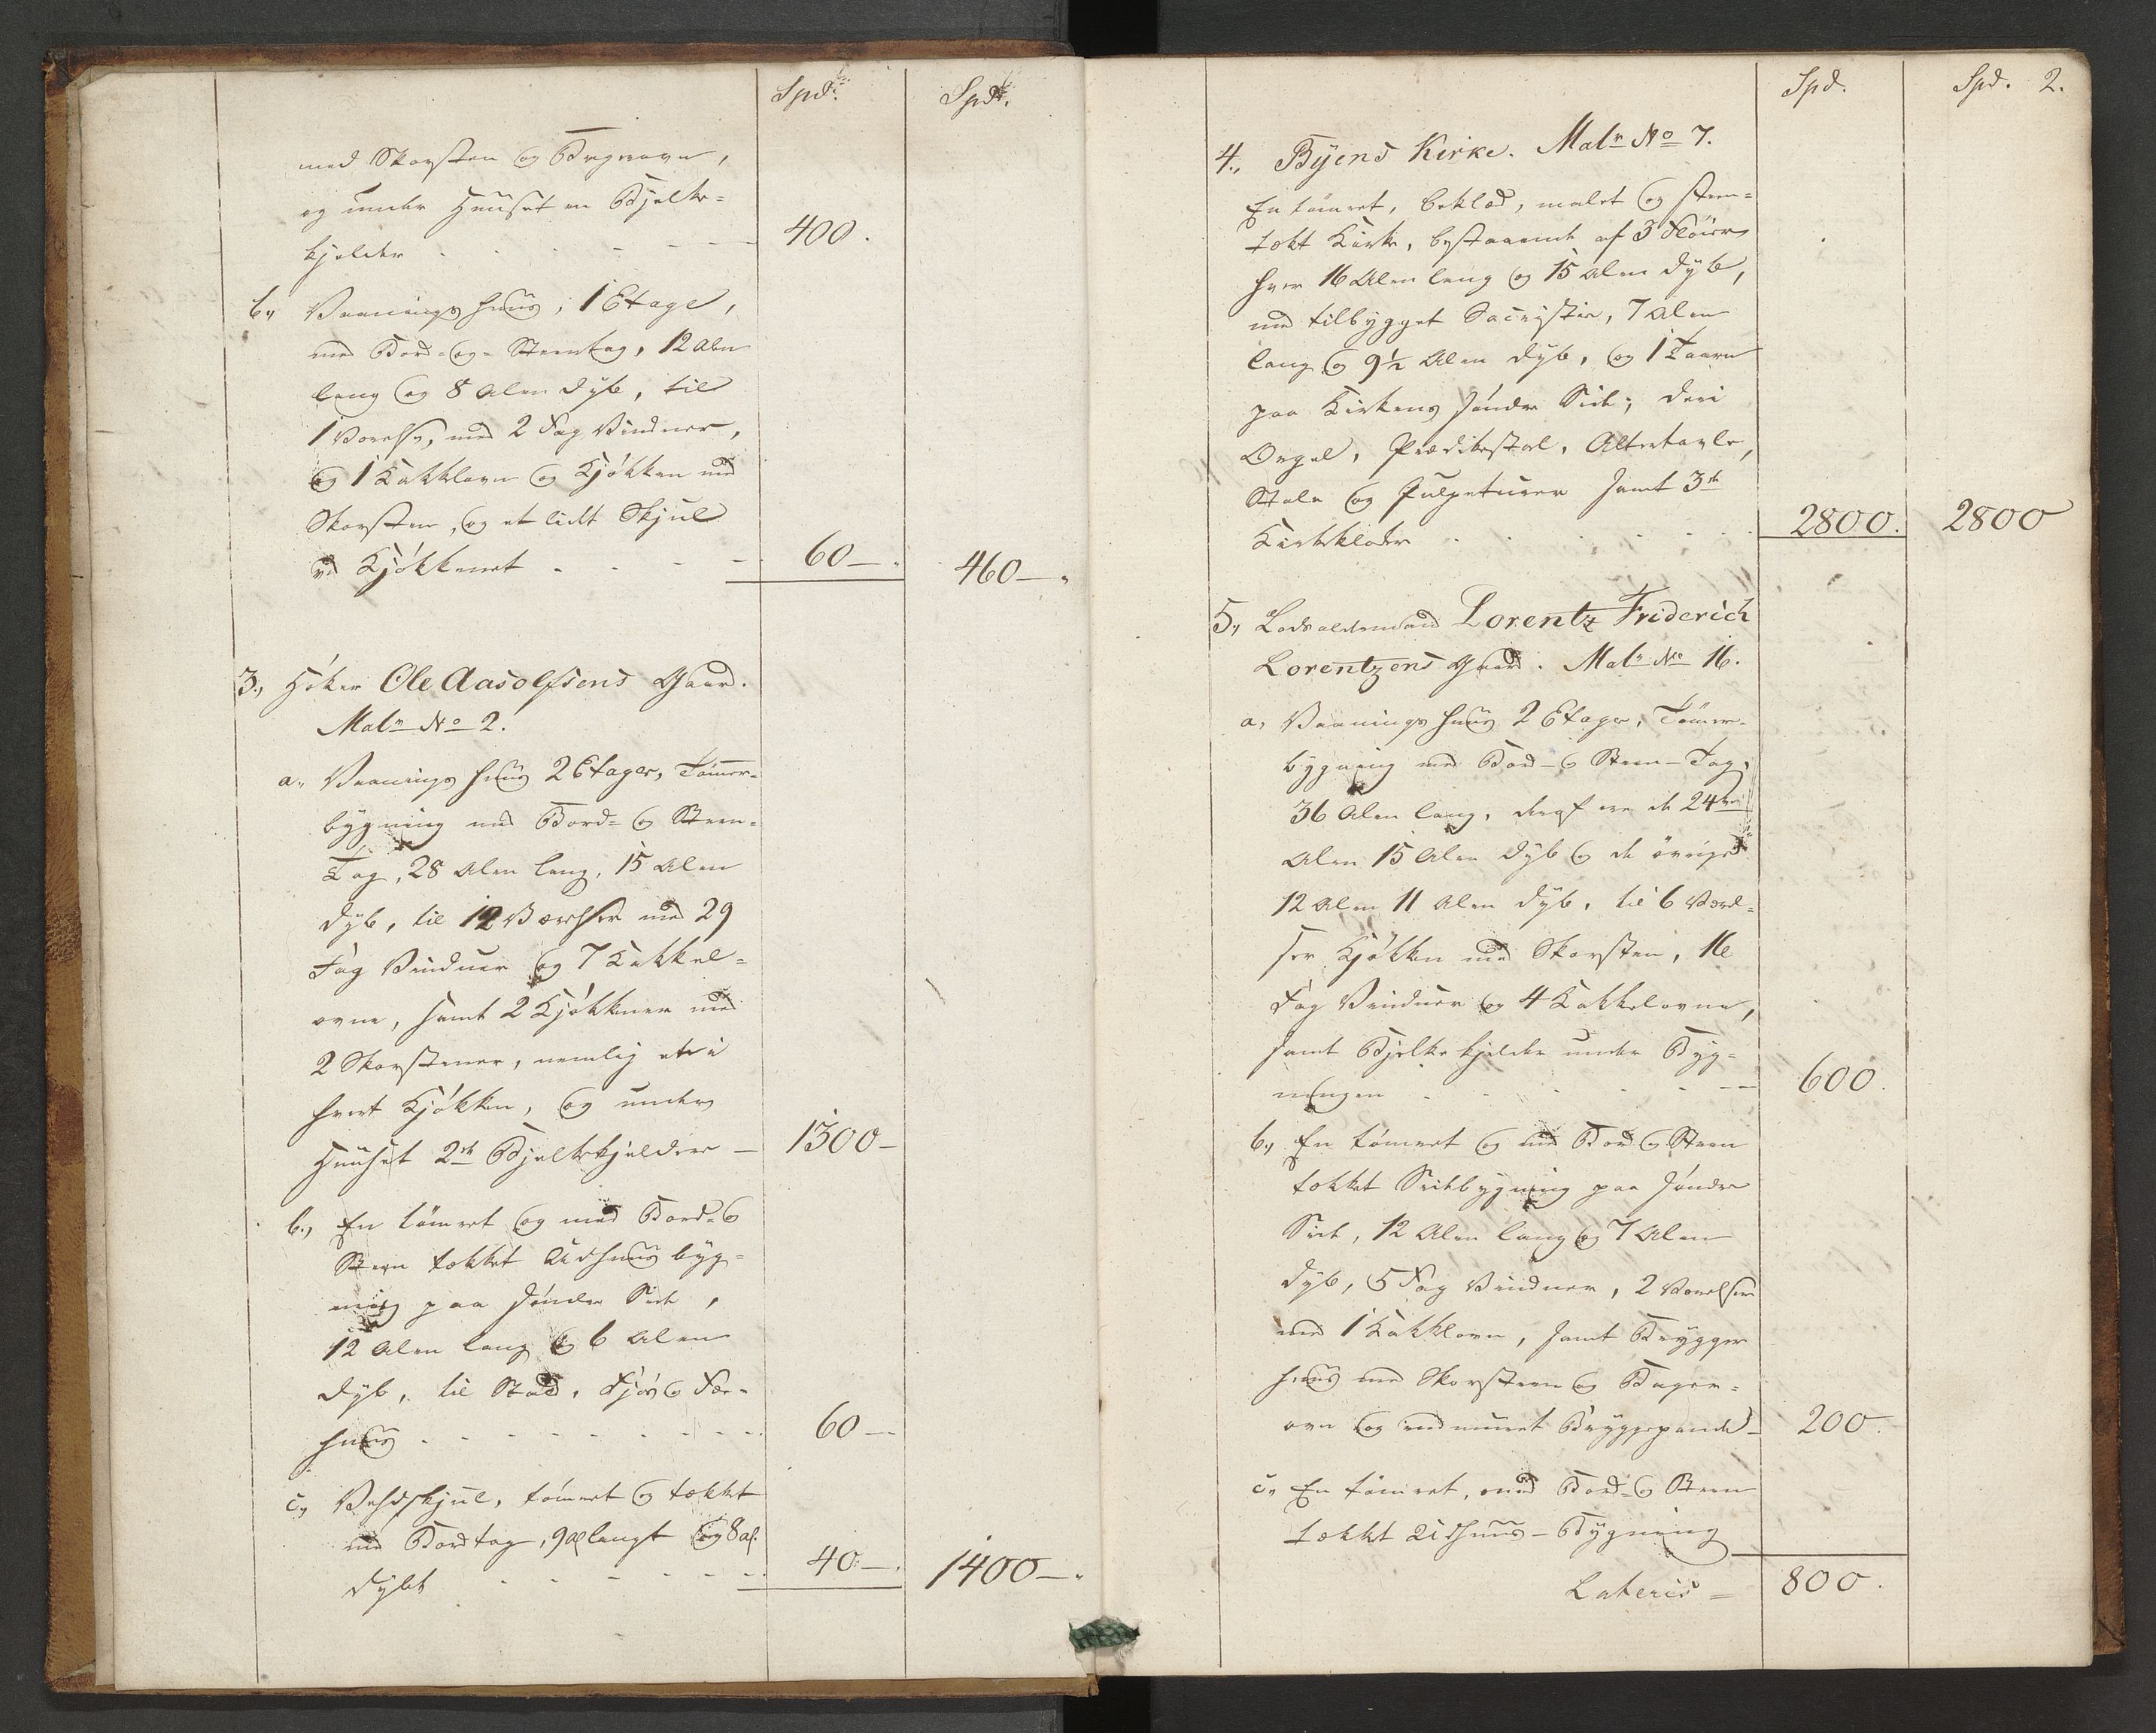 Spd. Spd.
med Skorsten og Bagerovn,
og under Huuset en Bjelke-
kjelder 400.
b., Vaaningshuus, 1 Etage,
med Bord- og Steentag, 12 Alen
lang og 8 Alen dyb, til
1 Værelse, med 2 Fag Vinduer,
og 1 Kakkelovn og Kjökken med
Skorsten, og et lidt Skjul
ved Kjökkenet 60 — 460 —
3., Höker Ole Aasolfsens Gaard.
Matr No 2.
a., Vaaningshuus 2 Etager, Tömmer-
bygning med Bord- og Steen-
Tag, 28 Alen lang, 15 Alen
dyb, til 12 Værelser med 29
Fag Vinduer og 7 Kakkel-
ovne, samt 2 Kjökkener med
2 Skorstener, nemlig een i
hvert Kjökken, og under
Huuset 2de Bjelkekjeldere — 1300 —
b., En tömret og med Bord- og
Steen tækket Udhuusbyg-
ning paa söndre Side,
12 Alen lang og 6 Alen
dyb, til Stald, Fjös og Far-
huus 60 —
c., Vedskjul, tömret og tækket
med Bordtag, 9 al langt og 8 al.
dybt 40 — 1400 —
Spd. Spd. 2.
4., Byens Kirke. Matr No 7.
En tömret, beklæd, malet og steen-
tækt Kirke, bestaaende af 3 Flöier
hver 16 Alen lang og 15 Alen dyb,
med tilbygget Sacristie, 7 Alen
lang og 9½ Alen dyb, og 1 Taarn
paa Kirkens söndre Side; deri
Orgel, Prædikestol, Altertavle,
Stole og Pulpeturer samt 3de
Kirkeklokker 2800. 2800
5., Lodsoldermand Lorentz Friderich
Lorentzens Gaard. Matr No 16.
a., Vaaningshuus 2 Etager, Tömmer-
bygning med Bord- og Steen-Tag,
36 Alen lang, deraf ere de 24re
Alen 15 Alen dyb og de övrige
12 Alen 11 Alen dyb, til 6 Værel-
ser Kjökken med Skorsten, 16
Fag Vinduer og 4 Kakkelovne,
samt Bjelkekjelder under Byg-
ningen 600.
b., En tömret og med Bord og Steen
tækket Sidebygning paa söndre
Side, 12 Alen lang og 7 Alen
dyb, 5 Fag Vinduer, 2 Værelser
med 1 Kakkelovn, samt Brygger
huus med Skorsteen og Bager-
ovn og indmuret Bryggepande — 200.
c., En tömret, med Bord- og Steen
tækket Udhuus-Bygning
Lateris = 800.